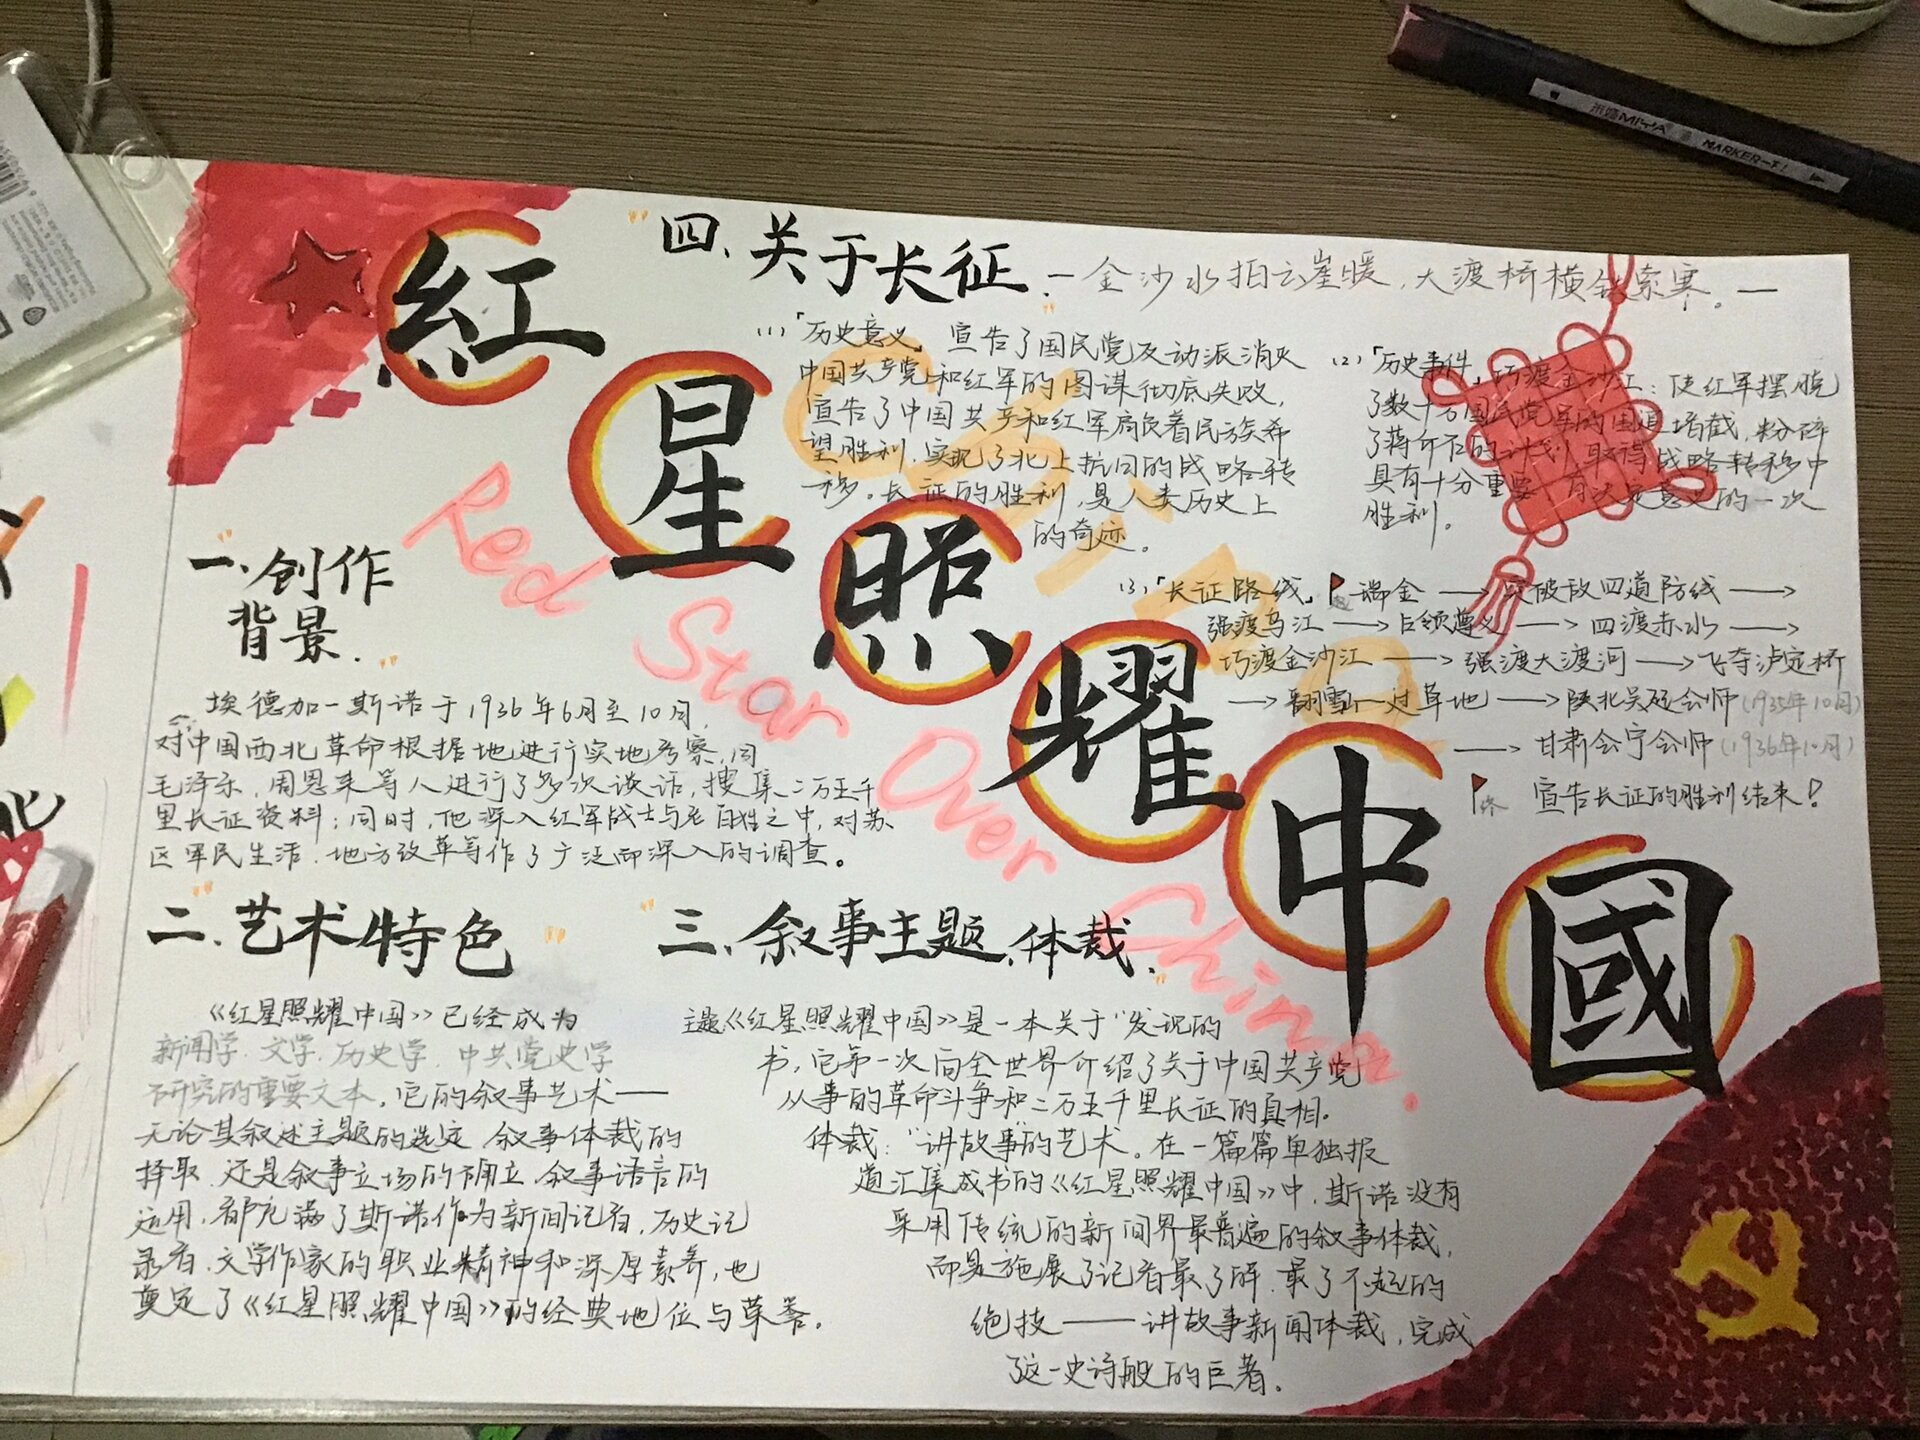 米娅MIYA
MARKER
紅星照耀中國
Red Star Over China.
四、关于长征.
—金沙水拍云崖暖,大渡桥横铁索寒。—
(1)「历史意义」宣告了国民党反动派消灭
中国共产党和红军的图谋彻底失败,
宣告了中国共产和红军肩负着民族希
望胜利,实现了北上抗日的战略转
移。长征的胜利,是人类历史上
的奇迹。
(2)「历史事件」巧渡金沙江:使红军摆脱
了数十万国民党军的围追堵截,粉碎
了蒋介石的计划,取得战略转移中
具有十分重要,有决定意义的一次
胜利。
(3)「长征路线」瑞金→突破敌四道防线→
强渡乌江→占领遵义→四渡赤水→
巧渡金沙江→强渡大渡河→飞夺泸定桥
→翻雪山过草地→陕北吴起会师(1935年10月)
→甘肃会宁会师(1936年10月)
终 宣告长征的胜利结束!
一、创作
背景.
埃德加-斯诺于1936年6月至10月,
对中国西北革命根据地进行实地考察,同
毛泽东,周恩来等人进行了多次谈话,搜集二万五千
里长征资料;同时,他深入红军战士与老百姓之中,对苏
区军民生活,地方改革等作了广泛而深入的调查。
二、艺术特色
《红星照耀中国》已经成为
新闻学.文学.历史学.中共党史学
研究的重要文本,它的叙事艺术——
无论其叙述主题的选定 叙事体裁的
择取.还是叙事立场的确立.叙事语言的
运用,都充满了斯诺作为新闻记者,历史记
录者,文学作家的职业精神和深厚素养,也
奠定了《红星照耀中国》的经典地位与荣誉.
三、叙事主题、体裁.
主题《红星照耀中国》是一本关于"发现的
书,它第一次向全世界介绍了关于中国共产党
从事的革命斗争和二万五千里长征的真相.
体裁:"讲故事"的艺术。在一篇篇单独报
道汇集成书的《红星照耀中国》中,斯诺没有
采用传统的新闻界最普遍的叙事体裁,
而是施展了记者最了解.最了不起的
绝技——讲故事新闻体裁,完成
了这一史诗般的巨著.